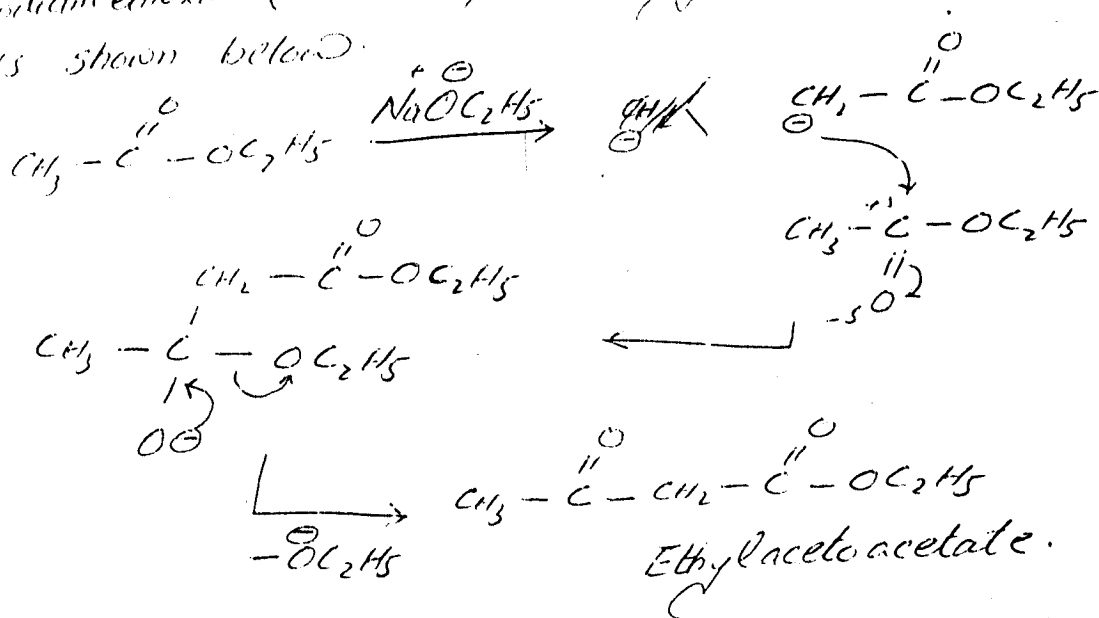 is shown below.
O
CH3 - C - OC2H5
+ ⊖
NaOC2H5
⊖
O
CH2 - C - OC2H5
⊖
CH3 - C - OC2H5
O
O
CH2 - C - OC2H5
CH3 - C - OC2H5
O⊖
- ⊖OC2H5
O O
CH3 - C - CH2 - C - OC2H5
Ethylacetoacetate.